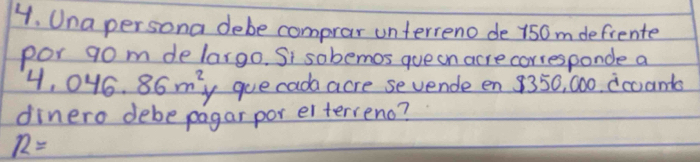 4. Una persona debe comprar un terreno de 150 m de frente
por 90 m de largo. Si sabemos que un acre corresponde a
4,046.86 m² y que cada acre se vende en $350,000. ¿cuanto
dinero debe pagar por el terreno?
R=